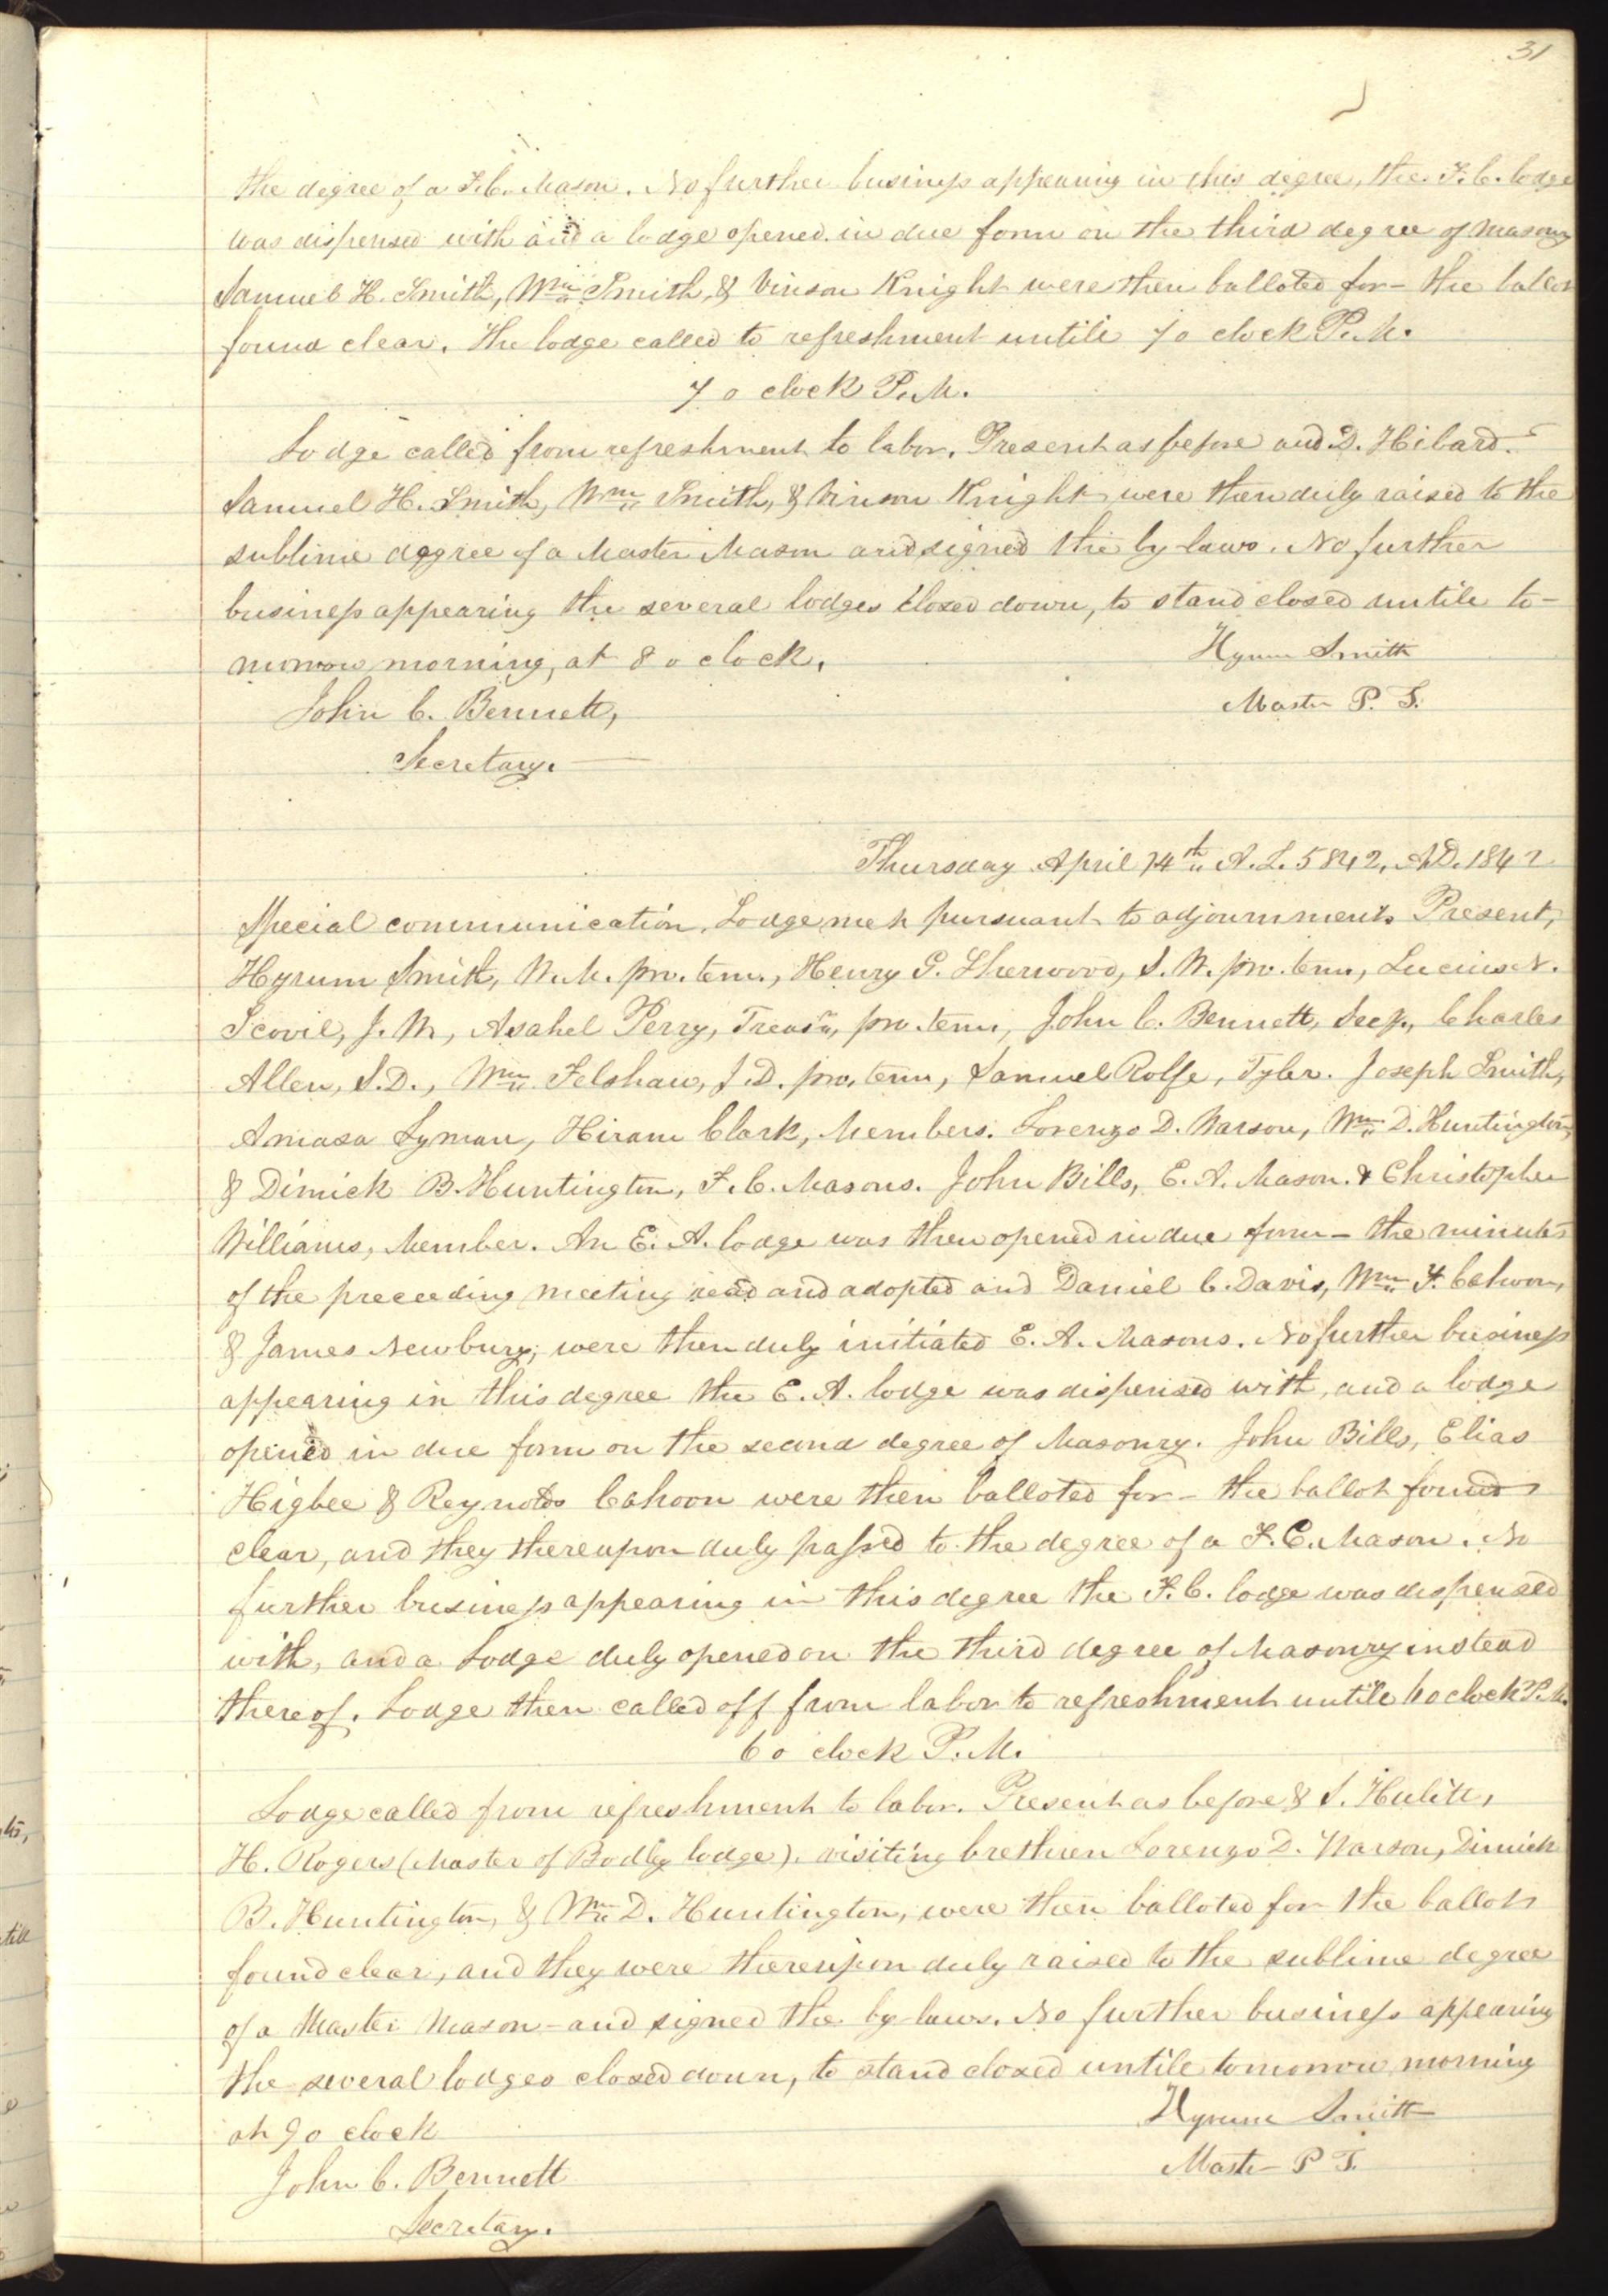 31
the degree of a F.C. Mason. No further business appearing in this degree, the F.C. lodge
was dispensed with and a lodge opened in due form on the third degree of Masonry
Samuel H. Smith, Wm Smith, & Vinson Knight were then balloted for - the ballot
found clear. The lodge called to refreshment untile 7 o clock P.M.
7 o clock P.M.
Lodge called from refreshment to labor. Present as before and D. Hibard.
Samuel H. Smith, Wm Smith, & Vinson Knight were then duly raised to the
sublime degree of a Master Mason and signed the by-laws. No further
business appearing the several lodges closed down, to stand closed untile to-
morrow morning, at 8 o clock.
Hyrum Smith
John C. Bennett,
Master P. T.
Secretary.
Thursday April 14th A.L. 5842, A.D. 1842
Special communication. Lodge met pursuant to adjournment. Present,
Hyrum Smith, W.M. pro. tem., Henry G. Sherwood, S.W. pro. tem, Lucius N.
Scovil, J.W, Asahel Perry, Treasr, pro. tem, John C. Bennett, Secy., Charles
Allen, S.D., Wm Felshaw, J.D. pro. tem, Samuel Rolfe, Tyler. Joseph Smith,
Amasa Lyman, Hiram Clark, Members. Lorenzo D. Warson, Wm D. Huntington,
& Dimick B. Huntington, F.C. Masons. John Bills, E. A. Mason. & Christopher
Williams, Member. An E. A. lodge was then opened in due form - the minutes
of the preceeding meeting read and adopted and Daniel C. Davis, Wm F. Cahoon,
& James Newbury, were then duly initiated E. A. Masons. No further business
appearing in this degree the E. A. lodge was dispensed with, and a lodge
opened in due form on the second degree of Masonry. John Bills, Elias
Higbee & Reynolds Cahoon were then balloted for - the ballot found
clear, and they thereupon duly passed to the degree of a F.C. Mason. No
further business appearing in this degree the F.C. lodge was dispensed
with, and a Lodge duly opened on the third degree of Masonry instead
thereof. Lodge then called off from labor to refreshment untile 6 o clock P.M.
6 o clock P.M.
Lodge called from refreshment to labor. Present as before & S. Hulitt,
H. Rogers (Master of Bodly lodge). visiting brethren Lorenzo D. Warson, Dimick
B. Huntington, & Wm D. Huntington, were then balloted for the ballots
found clear, and they were thereupon duly raised to the sublime degree
of a Master Mason - and signed the by-laws. No further business appearing
the several lodges closed down, to stand closed untile tomorrow morning
at 9 o clock
Hyrum Smith
John C. Bennett
Master P T.
Secretary.